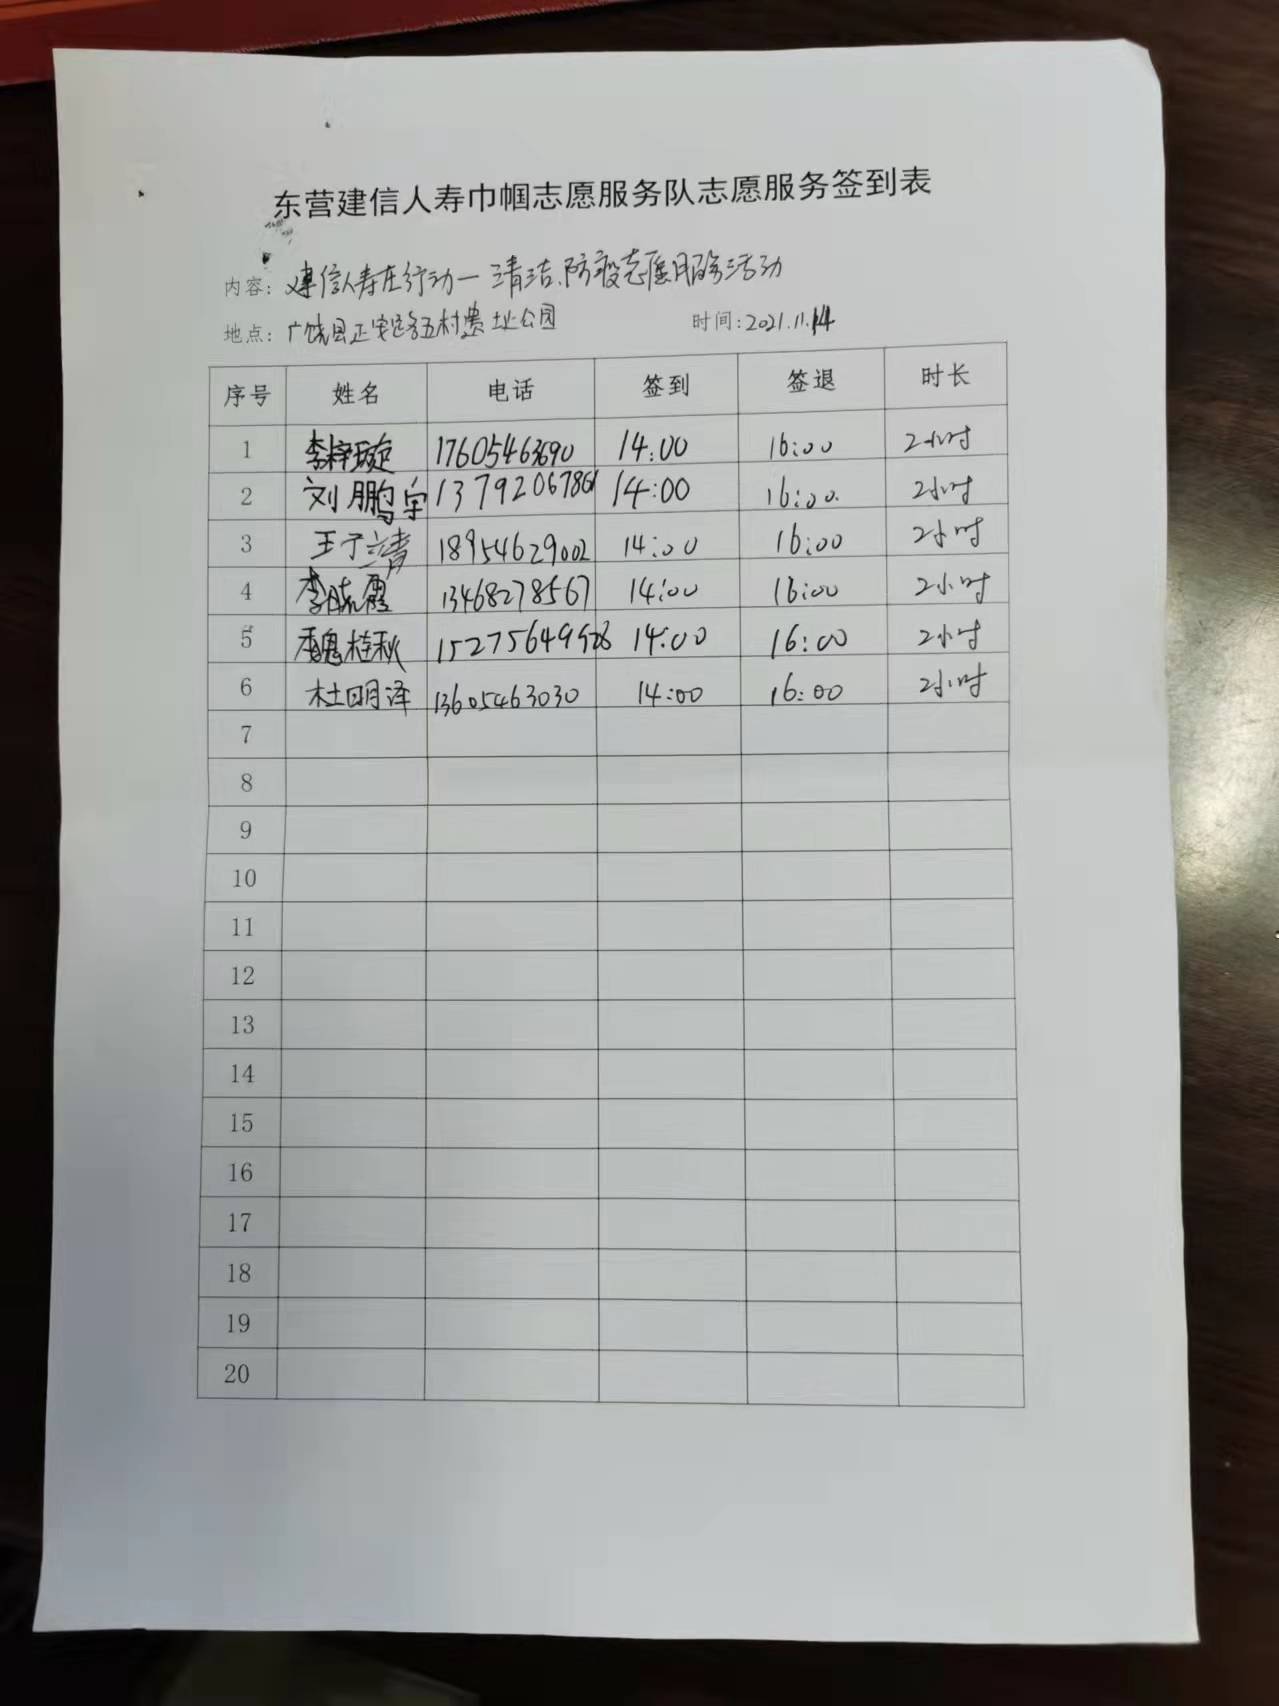 东营建信人寿巾帼志愿服务队志愿服务签到表
内容：建信人寿在行动—清洁、防疫志愿服务活动
地点：广饶县正安路五村遗址公园 时间：2021.11.14
序号 姓名 电话 签到 签退 时长
1 李梓璇 17605463690 14:00 16:00 2小时
2 刘鹏宇 13792067861 14:00 16:00. 2小时
3 王子清 18954629002 14:00 16:00 2小时
4 李晓霞 13468278567 14:00 16:00 2小时
5 魏桂秋 15275649928 14:00 16:00 2小时
6 杜明泽 13605463030 14:00 16:00 2小时
7
8
9
10
11
12
13
14
15
16
17
18
19
20